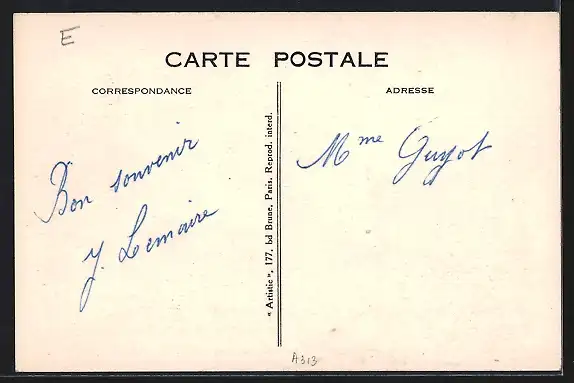 E
CARTE POSTALE
CORRESPONDANCE
ADRESSE
Bon souvenir
Y. Lemaire
Mme Guyot
« Artistic », 177, bd Brune, Paris. Reprod. interd.
A313